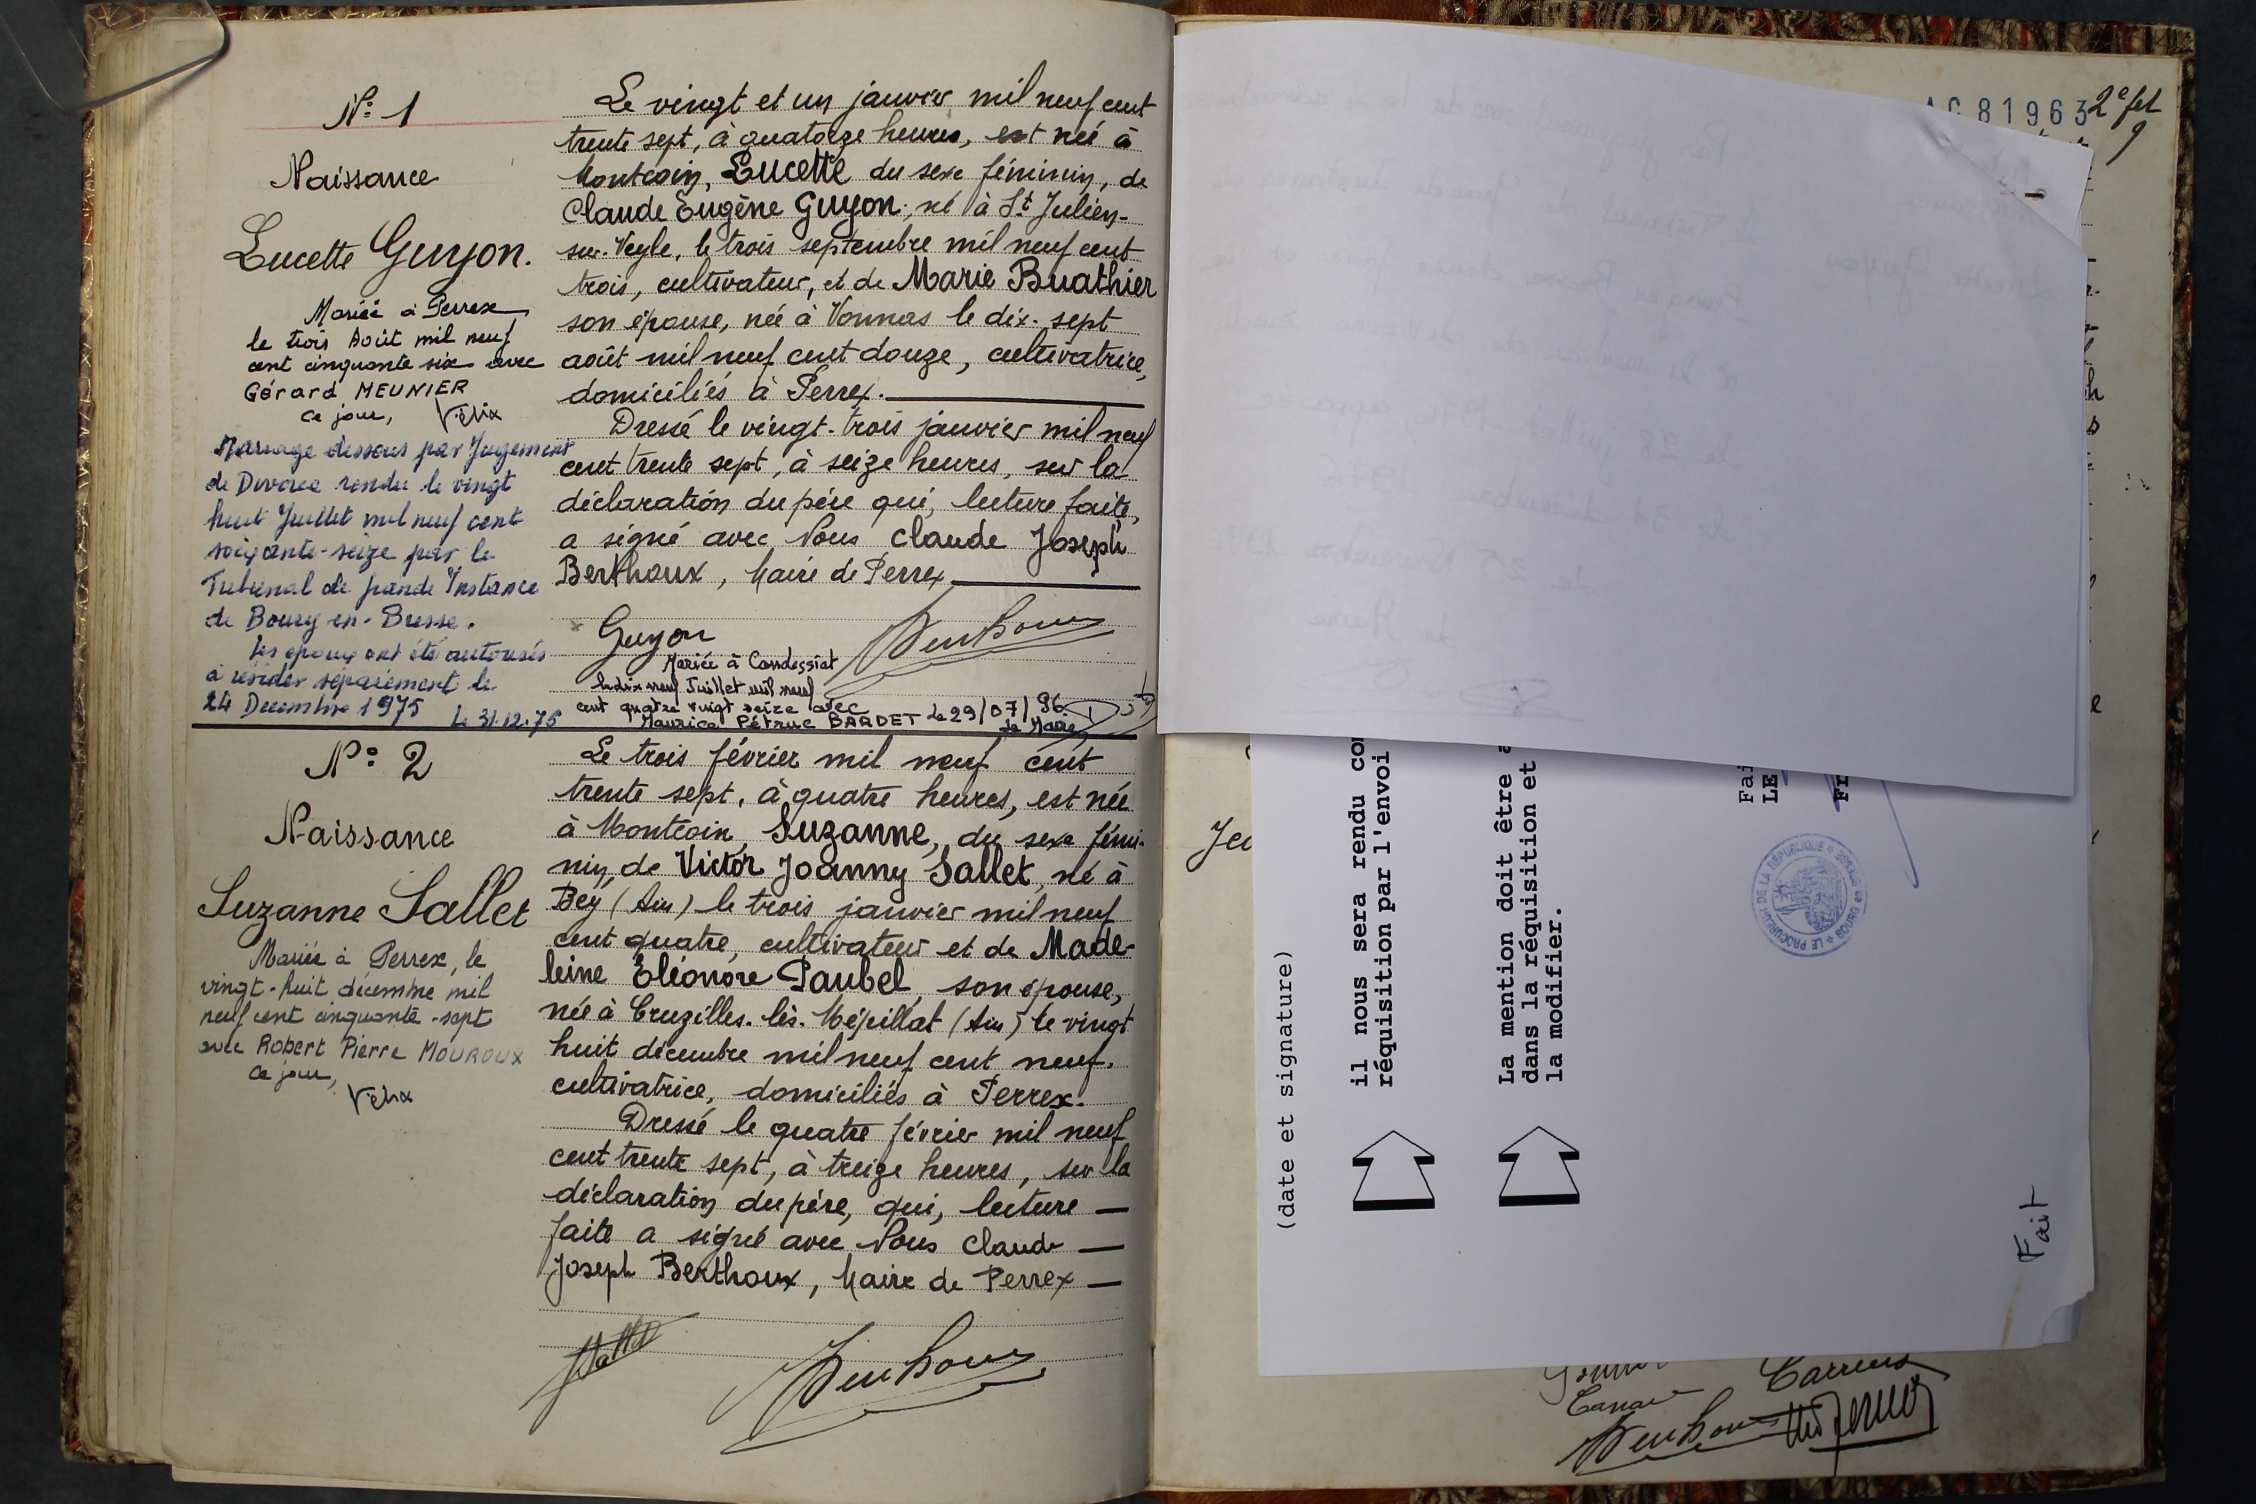 N: 1
Naissance
Lucette Guyon.
Mariée à Perrex
le trois Août mil neuf
cent cinquante six avec
Gérard MEUNIER
Ce jour, Félix
Mariage dissous par Jugement
de Divorce rendu le vingt
huit Juillet mil neuf cent
soixante-seize par le
Tribunal de grande Instance
de Bourg en-Bresse.
Les époux ont été autorisés
à résider séparément le
24 Décembre 1975 Le 31-12-76
Le vingt et un janvier mil neuf cent
trente sept, à quatorze heures, est née à
Montcoin, Lucette du sexe féminin, de
Claude Eugène Guyon, né à St Julien-
sur-Veyle, le trois septembre mil neuf cent
trois, cultivateur, et de Marie Buathier
son épouse, née à Vonnas le dix-sept
août mil neuf cent douze, cultivatrice,
domiciliés à Perrex.
Dressé le vingt-trois janvier mil neuf
cent trente sept, à seize heures, sur la
déclaration du père qui, lecture faite,
a signé avec Nous Claude Joseph
Berthoux, Maire de Perrex
Guyon Berthoux
Mariée à Condeissiat
le dix neuf Juillet mil neuf
cent quatre vingt seize avec
Maurice Pétrus BARDET le 29/07/96
Le Maire
N: 2
Naissance
Suzanne Sallet
Mariée à Perrex, le
vingt-huit décembre mil
neuf cent cinquante-sept
avec Robert Pierre MOUROUX
Ce jour,
Félix
Le trois février mil neuf cent
trente sept, à quatre heures, est née
à Montcoin, Suzanne, du sexe fémi-
nin, de Victor Joanny Sallet, né à
Bey (Ain) le trois janvier mil neuf
cent quatre, cultivateur et de Made-
leine Eléonore Paubel, son épouse,
née à Cruzilles-les-Mépillat (Ain) le vingt
huit décembre mil neuf cent neuf.
cultivatrice, domiciliés à Perrex.
Dressé le quatre février mil neuf
cent trente sept, à treize heures, sur la
déclaration du père, qui, lecture
faite a signé avec Nous Claude
Joseph Berthoux, Maire de Perrex
Sallet Berthoux
81963 2e fet
9
(date et signature)
il nous sera rendu
réquisition par l'envoi
La mention doit être
dans la réquisition et
la modifier.
Fai
LE
Fr
LE PROCUREUR DE LA REPUBLIQUE
Fait
Carreau
Berthoux